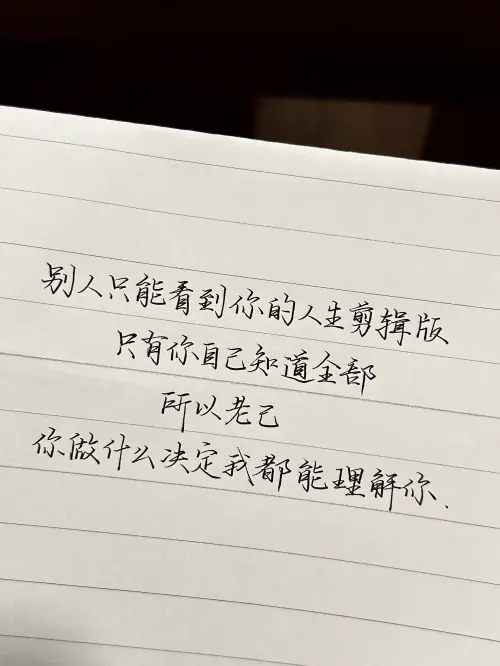 别人只能看到你的人生剪辑版
只有你自己知道全部
所以老己
你做什么决定我都能理解你.